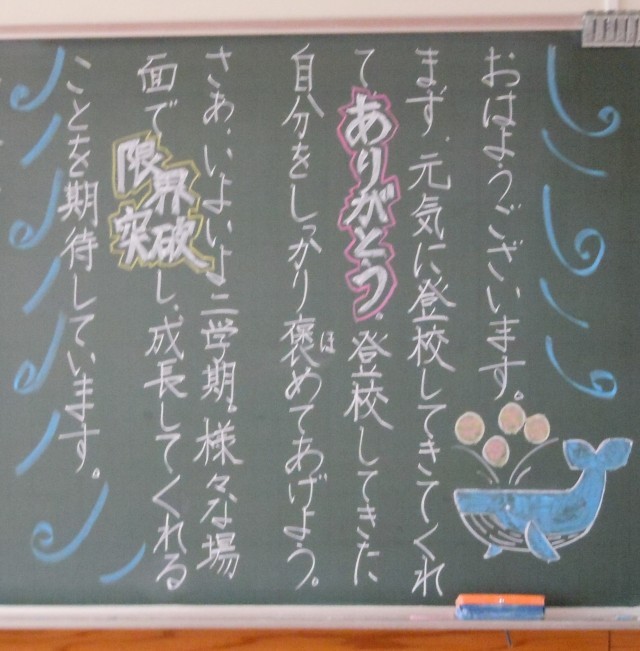 おはようございます。
まず、元気に登校してきてくれ
て、ありがとう。登校してきた
自分をしっかり褒めてあげよう。
ほ
さあ、いよいよ二学期。様々な場
面で限界突破し、成長してくれる
ことを期待しています。